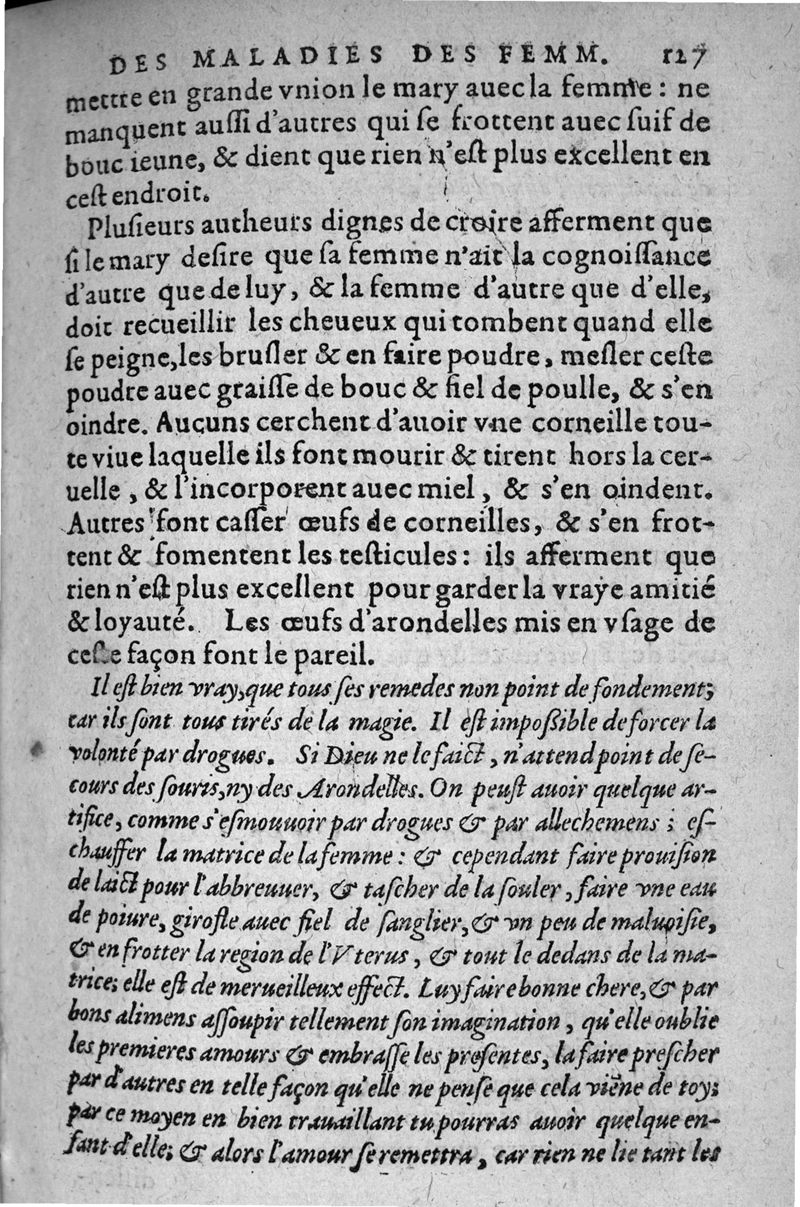 DES MALADIES DES FEMM. 127
mettre en grande vnion le mary auec la femme : ne
manquent auſſi d'autres qui ſe frottent auec ſuif de
bouc ieune, & dient que rien n'eſt plus excellent en
ceſt endroit.
Pluſieurs autheurs dignes de croire afferment que
ſi le mary deſire que ſa femme n'ait la cognoiſſance
d'autre que de luy, & la femme d'autre que d'elle,
doit recueillir les cheueux qui tombent quand elle
ſe peigne, les bruſler & en faire poudre, meſler ceſte
poudre auec graiſſe de bouc & fiel de poulle, & s'en
oindre. Aucuns cerchent d'auoir vne corneille tou-
te viue laquelle ils font mourir & tirent hors la cer-
uelle, & l'incorporent auec miel, & s'en oindent.
Autres font caſſer œufs de corneilles, & s'en frot-
tent & fomentent les teſticules : ils afferment que
rien n'eſt plus excellent pour garder la vraye amitié
& loyauté. Les œufs d'arondelles mis en vſage de
ceſte façon font le pareil.
Il eſt bien vray, que tous ſes remedes non point de fondement;
car ils ſont tous tirés de la magie. Il eſt impoſſible de forcer la
volonté par drogues. Si Dieu ne le faict, n'attend point de ſe-
cours des ſouris, ny des Arondelles. On peuſt auoir quelque ar-
tifice, comme s'eſmouuoir par drogues & par allechemens ; eſ-
chauffer la matrice de la femme : & cependant faire prouiſion
de laict pour l'abbreuuer, & taſcher de la ſouler, faire vne eau
de poiure, girofle auec fiel de ſanglier, & vn peu de maluoiſie,
& en frotter la region de l'Vterus, & tout le dedans de la ma-
trice; elle eſt de merueilleux effect. Luy faire bonne chere, & par
bons alimens aſſoupir tellement ſon imagination, qu'elle oublie
les premieres amours & embraſſe les preſentes, la faire preſcher
par d'autres en telle façon qu'elle ne penſe que cela viëne de toy;
par ce moyen en bien trauaillant tu pourras auoir quelque en-
fant d'elle; & alors l'amour ſe remettra, car rien ne lie tant les